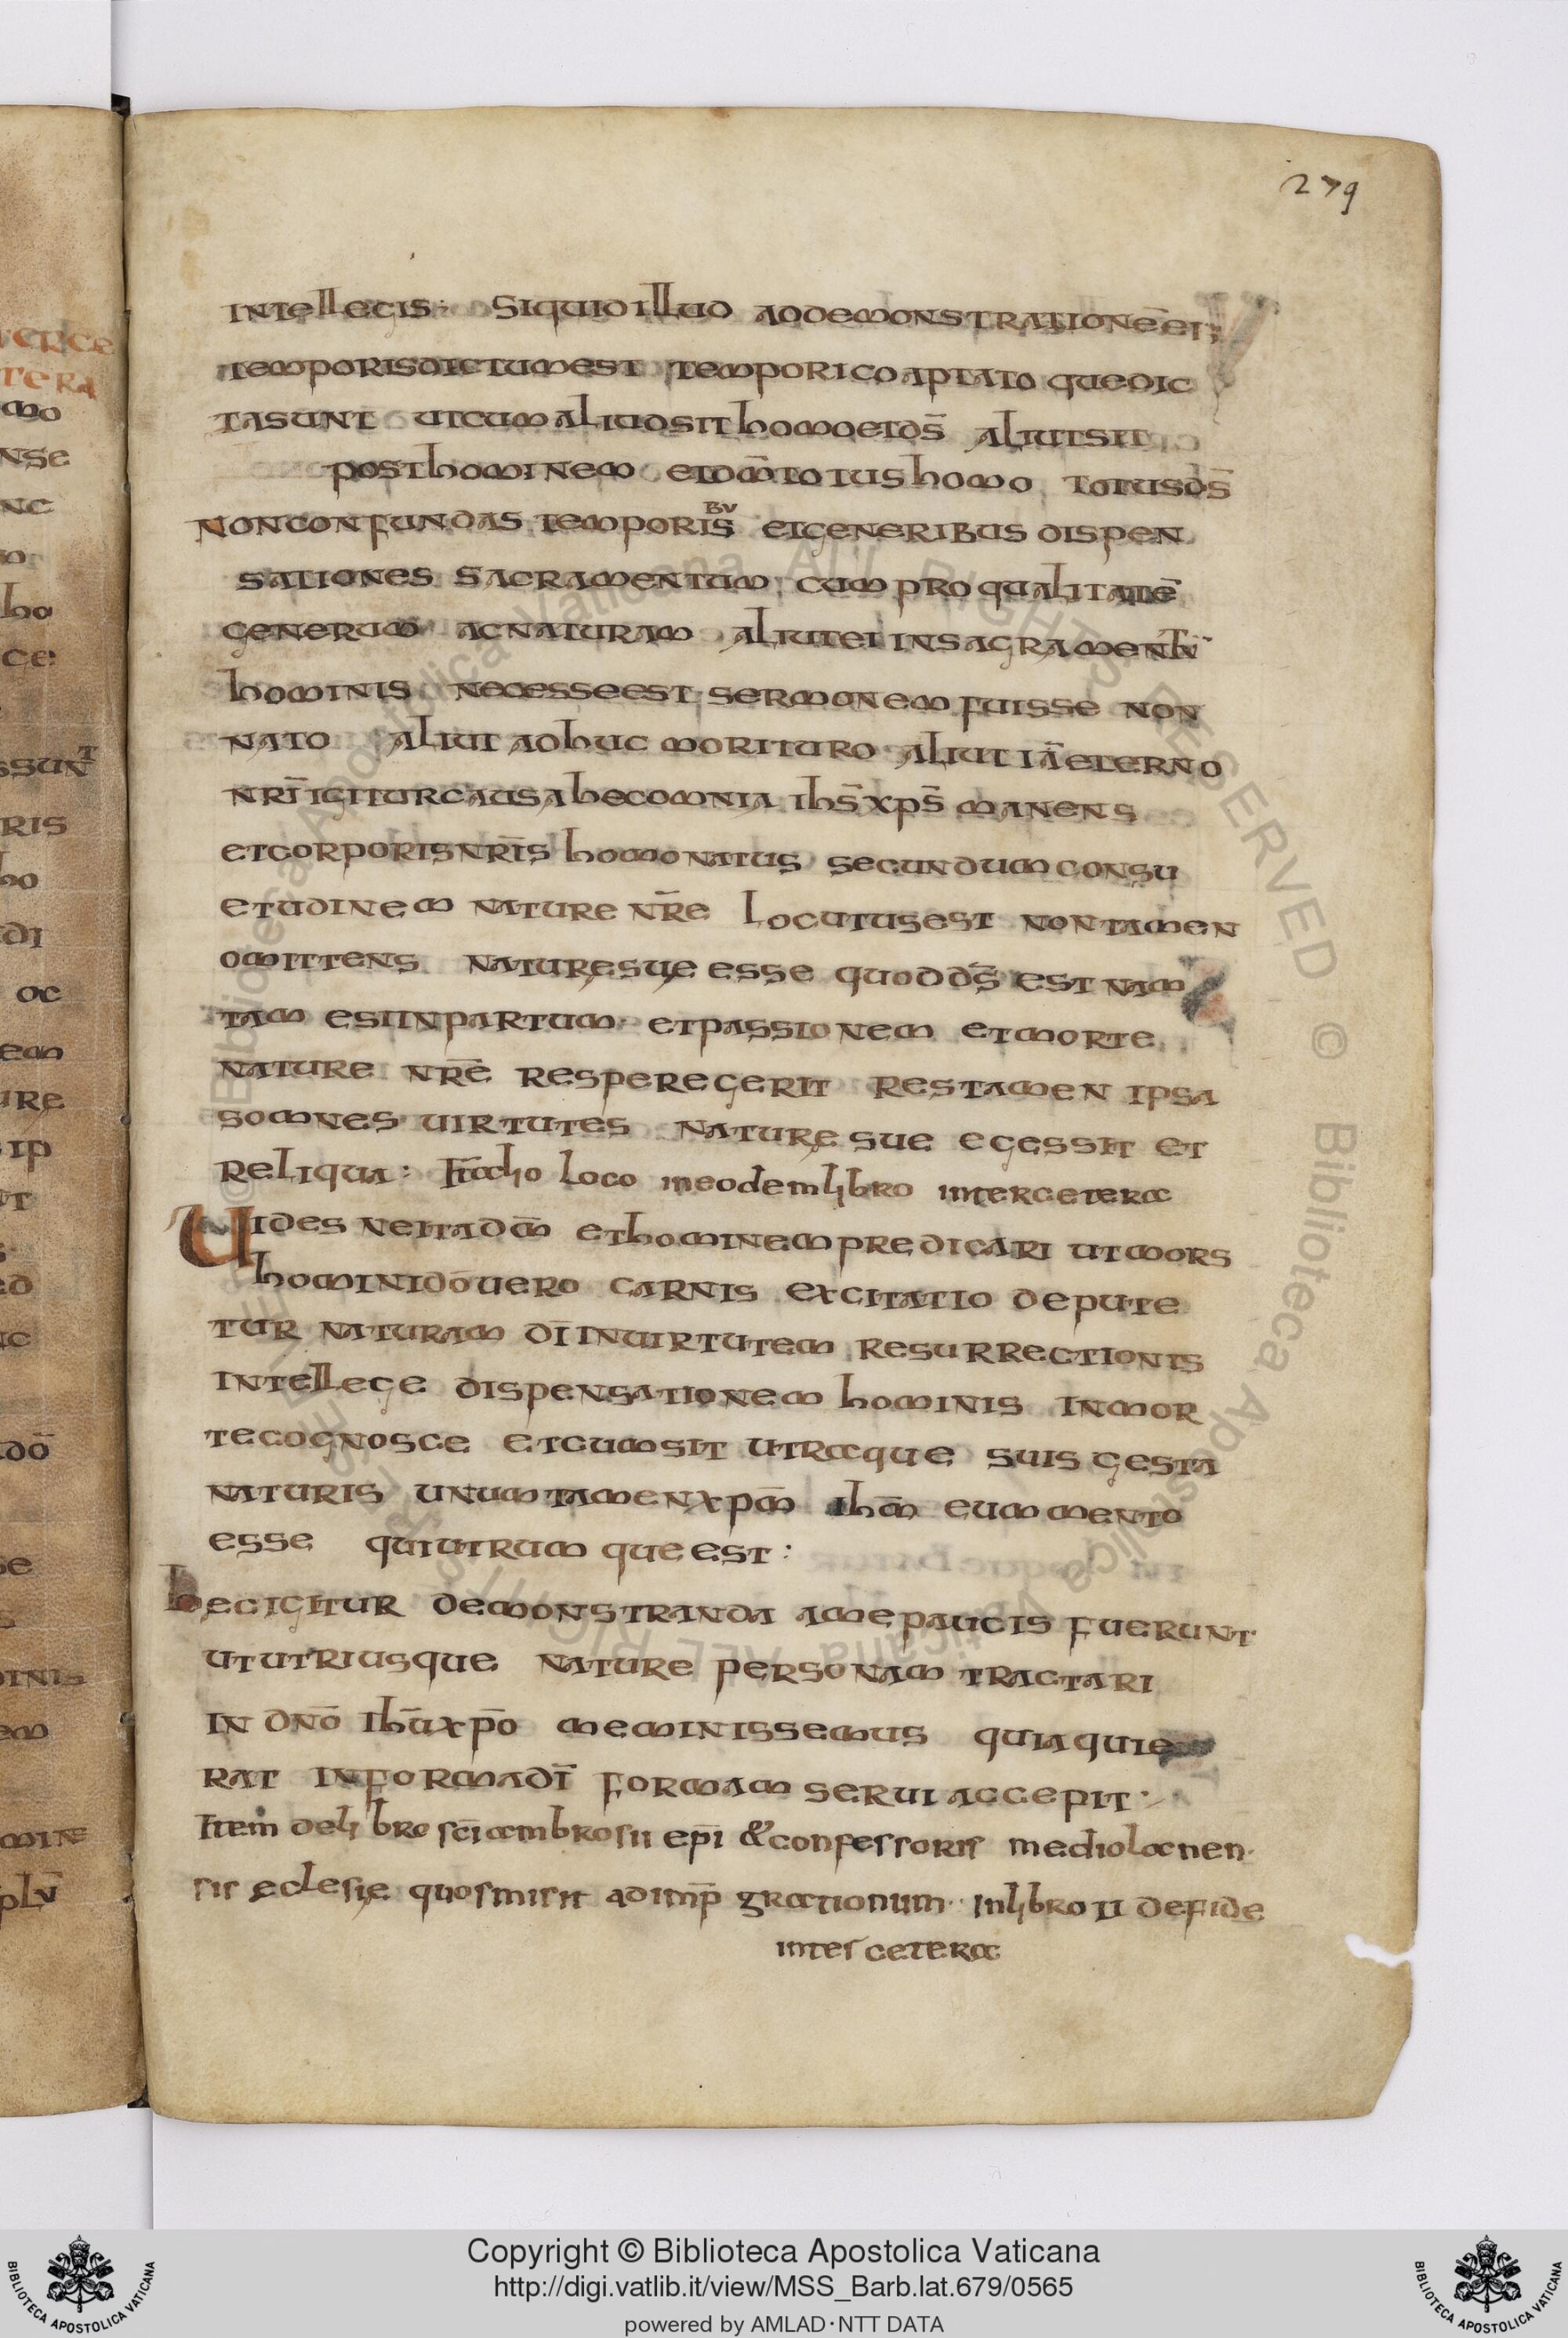 279
intellegis· Siquid illud ad demonstrationē ei;
temporis dictum est tempori coaptato que dic
ta sunt ut cum aliud sit homo et ds̄ aliut sit
post hominem et dm̄ totus homo totus ds̄
Non confundas temporibuṣ et generibus dispen
sationes sacramentum cum pro qualitate
generum ac naturam aliut ei in sacramentū
hominis necesse est sermonem fuisse non
nato aliut adhuc morituro aliut iā eterno
nr̄i igitur causa hec omnia ihs̄ xps̄ manens
et corporis nr̄is homo natus secundum consu
etudinem nature nr̄e locutus est non tamen
omittens nature sue esse quod ds̄ est nam
tam esi in partum et passionem et morte
nature nr̄e res peregerit res tamen ipsa
s omnes virtutes nature sue egessit et
reliqua: It̄ alio loco in eodem libro inter cetera
Vides neita dm̄ et hominem predicari ut mors
homini dō vero carnis excitatio depute
tur naturam dī in virtutem resurrectionis
intellege dispensationem hominis in mor
te cognosce et cum sit utraque suis gesta
naturis unum tamen xpm̄ ihm̄ eum mento
esse qui utrumque est:
hec igitur demonstranda a me paucis fuerunt
ut utriusque nature personam tractari
in dnō ihū xpō meminissemus quia qui e
rat in forma dī formam servi accepit·
Item de libro sc̄i ambrosii ep̄i & confessoris mediolanen·
sis eclesie quos misit ad imp̄ gratianum· In libro II de fide
inter cetera
Copyright © Biblioteca Apostolica Vaticana
http://digi.vatlib.it/view/MSS_Barb.lat.679/0565
powered by AMLAD·NTT DATA